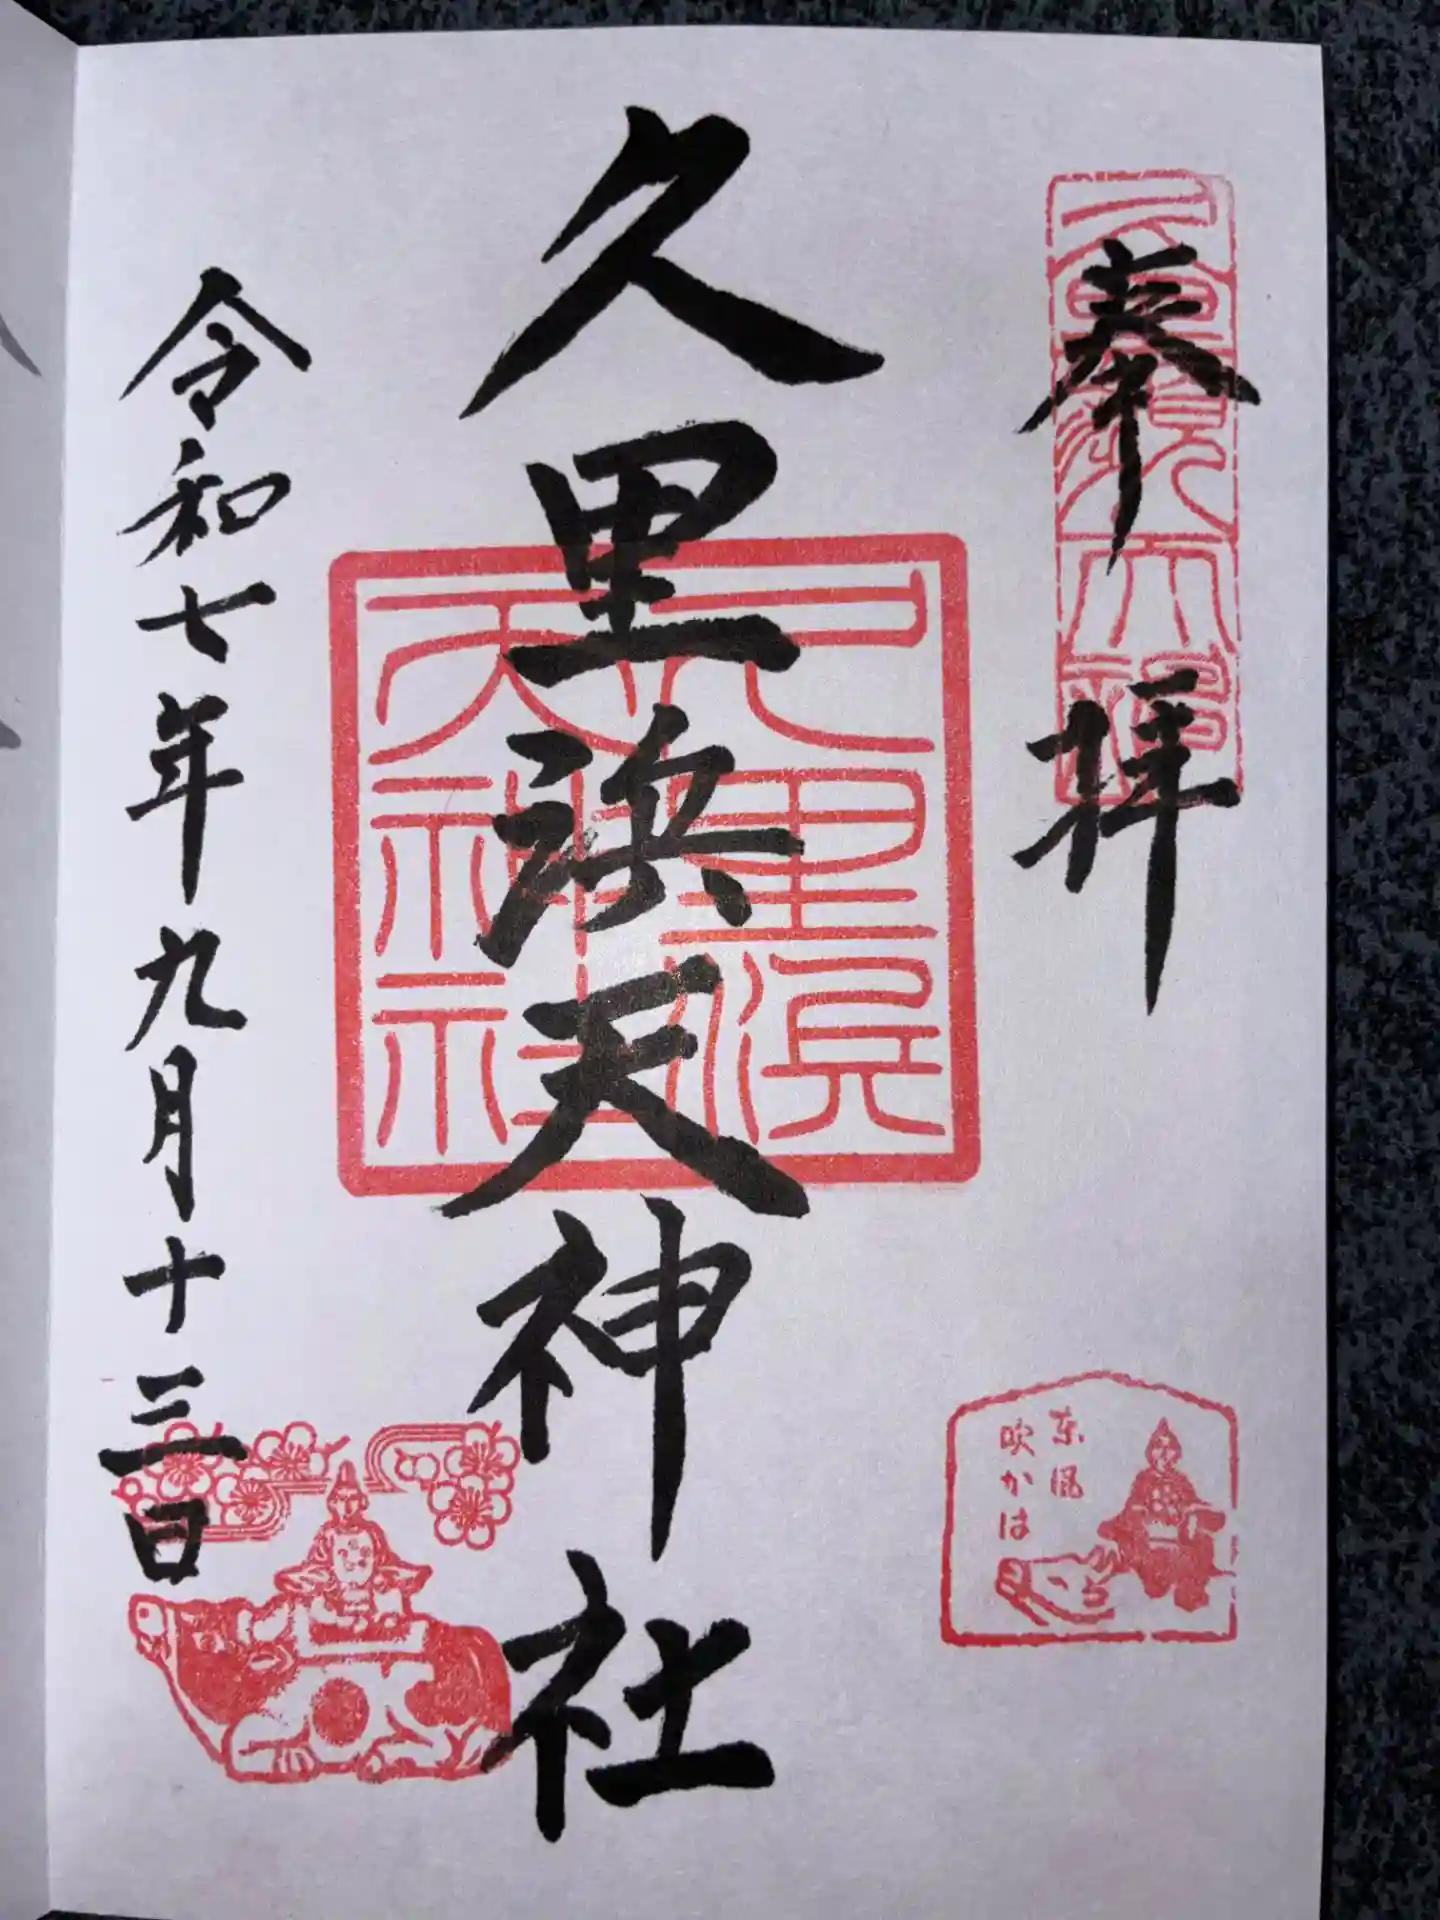 奉拝
久里浜天神社
久里浜
天神社
令和七年九月十三日
東風
吹かは